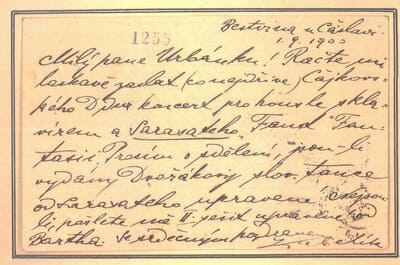 1255
Bestvina u Čáslavi
1.9.1900
Milý pane Urbánku! Račte mi
laskavě zaslat (co nejdříve) Čajkov-
ského D dur koncert pro housle s kla-
vírem a Sarasateho "Faust" Fan-
tasii. Prosím o sdělení, jsou-li
vydány Dvořákovy slov. tance
od Sarasateho upravené, nejsou-
li, pošlete mě II. sešit upravený od
Bartha. Se srdečným pozdravem